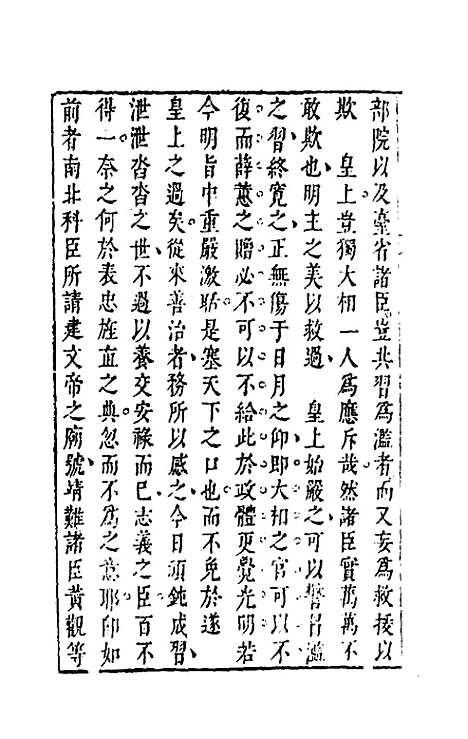 部院以及臺省諸臣豈共習爲濫者而又妄爲救援以
欺　皇上豈獨大相一人爲應斥哉然諸臣實萬萬不
敢欺也明主之美以救過　皇上始嚴之可以警習濫
之習終寬之正無傷于日月之仰即大相之官可以不
復而薛蕙之贈必不可以不給此於政體更覺光明若
今明旨中重嚴激聒是塞天下之口也而不免於遂
皇上之過矣從來善治者務所以感之今日頑鈍成習
泄泄沓沓之世不過以養交安祿而已志義之臣百不
得一奈之何於表忠旌直之典忽而不爲之意耶即如
前者南北科臣所請建文帝之廟號靖難諸臣黃觀等